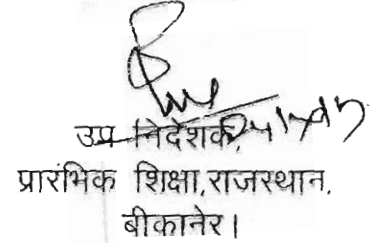 उप निदेशक,
प्रारंभिक शिक्षा,राजस्थान,
बीकानेर।